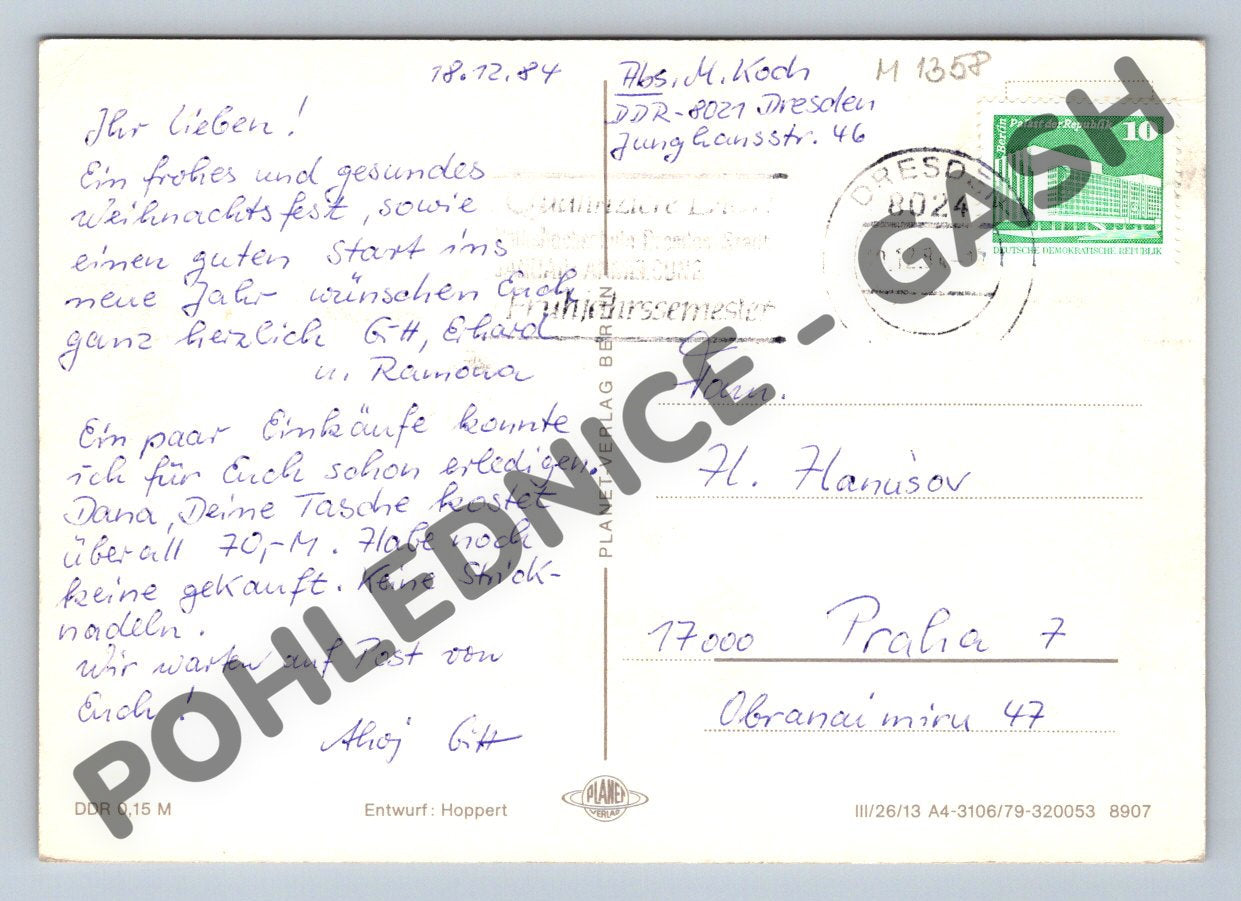 18.12.84
Ihr Lieben!
Ein frohes und gesundes
Weihnachtsfest, sowie
einen guten Start ins
neue Jahr wünschen Euch
ganz herzlich Gitt, Erhard
u. Ramona
Ein paar Einkäufe konnte
ich für Euch schon erledigen.
Dana, Deine Tasche kostet
überall 70,-M. Habe noch
keine gekauft. Keine Strick-
nadeln.
Wir warten auf Post von
Euch!
Ahoj Gitt
Abs. M. Koch
DDR-8021 Dresden
Junghansstr. 46
M 1358
Berlin Palast der Republik 10
DEUTSCHE DEMOKRATISCHE REPUBLIK
DRESDEN
8024
Frühjahrssemester
Fam.
H. Hanúsov
17000 Praha 7
Obranaimiru 47
PLANET-VERLAG BERLIN
DDR 0,15 M
Entwurf: Hoppert
PLANET
VERLAG
III/26/13 A4-3106/79-320053 8907
POHLEDNICE - GASH